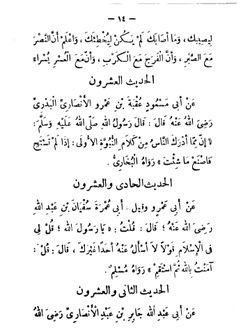 — ١٤ —
لِيُصِيبَكَ، وَمَا أَصَابَكَ لَمْ يَكُنْ لِيُخْطِئَكَ، وَاعْلَمْ أَنَّ النَّصْرَ
مَعَ الصَّبْرِ، وَأَنَّ الْفَرَجَ مَعَ الْكَرْبِ، وَأَنَّ مَعَ الْعُسْرِ يُسْرًا»
الحديث العشرون
عَنْ أَبِي مَسْعُودٍ عُقْبَةَ بْنِ عَمْرٍو الْأَنْصَارِيِّ الْبَدْرِيِّ
رَضِيَ اللهُ عَنْهُ قَالَ: قَالَ رَسُولُ اللهِ صَلَّى اللهُ عَلَيْهِ وَسَلَّمَ:
«إِنَّ مِمَّا أَدْرَكَ النَّاسُ مِنْ كَلَامِ النُّبُوَّةِ الْأُولَى: إِذَا لَمْ تَسْتَحِ
فَاصْنَعْ مَا شِئْتَ» رَوَاهُ الْبُخَارِيُّ
الحديث الحادى والعشرون
عَنْ أَبِي عَمْرٍو وَقِيلَ: أَبِي عَمْرَةَ سُفْيَانَ بْنِ عَبْدِ اللهِ
رَضِيَ اللهُ عَنْهُ قَالَ: قُلْتُ: «يَا رَسُولَ اللهِ، قُلْ لِي
فِي الْإِسْلَامِ قَوْلًا لَا أَسْأَلُ عَنْهُ أَحَدًا غَيْرَكَ، قَالَ: قُلْ
آمَنْتُ بِاللهِ ثُمَّ اسْتَقِمْ» رَوَاهُ مُسْلِمٌ
الحديث الثانى والعشرون
عَنْ أَبِي عَبْدِ اللهِ جَابِرِ بْنِ عَبْدِ اللهِ الْأَنْصَارِيِّ رَضِيَ اللهُ